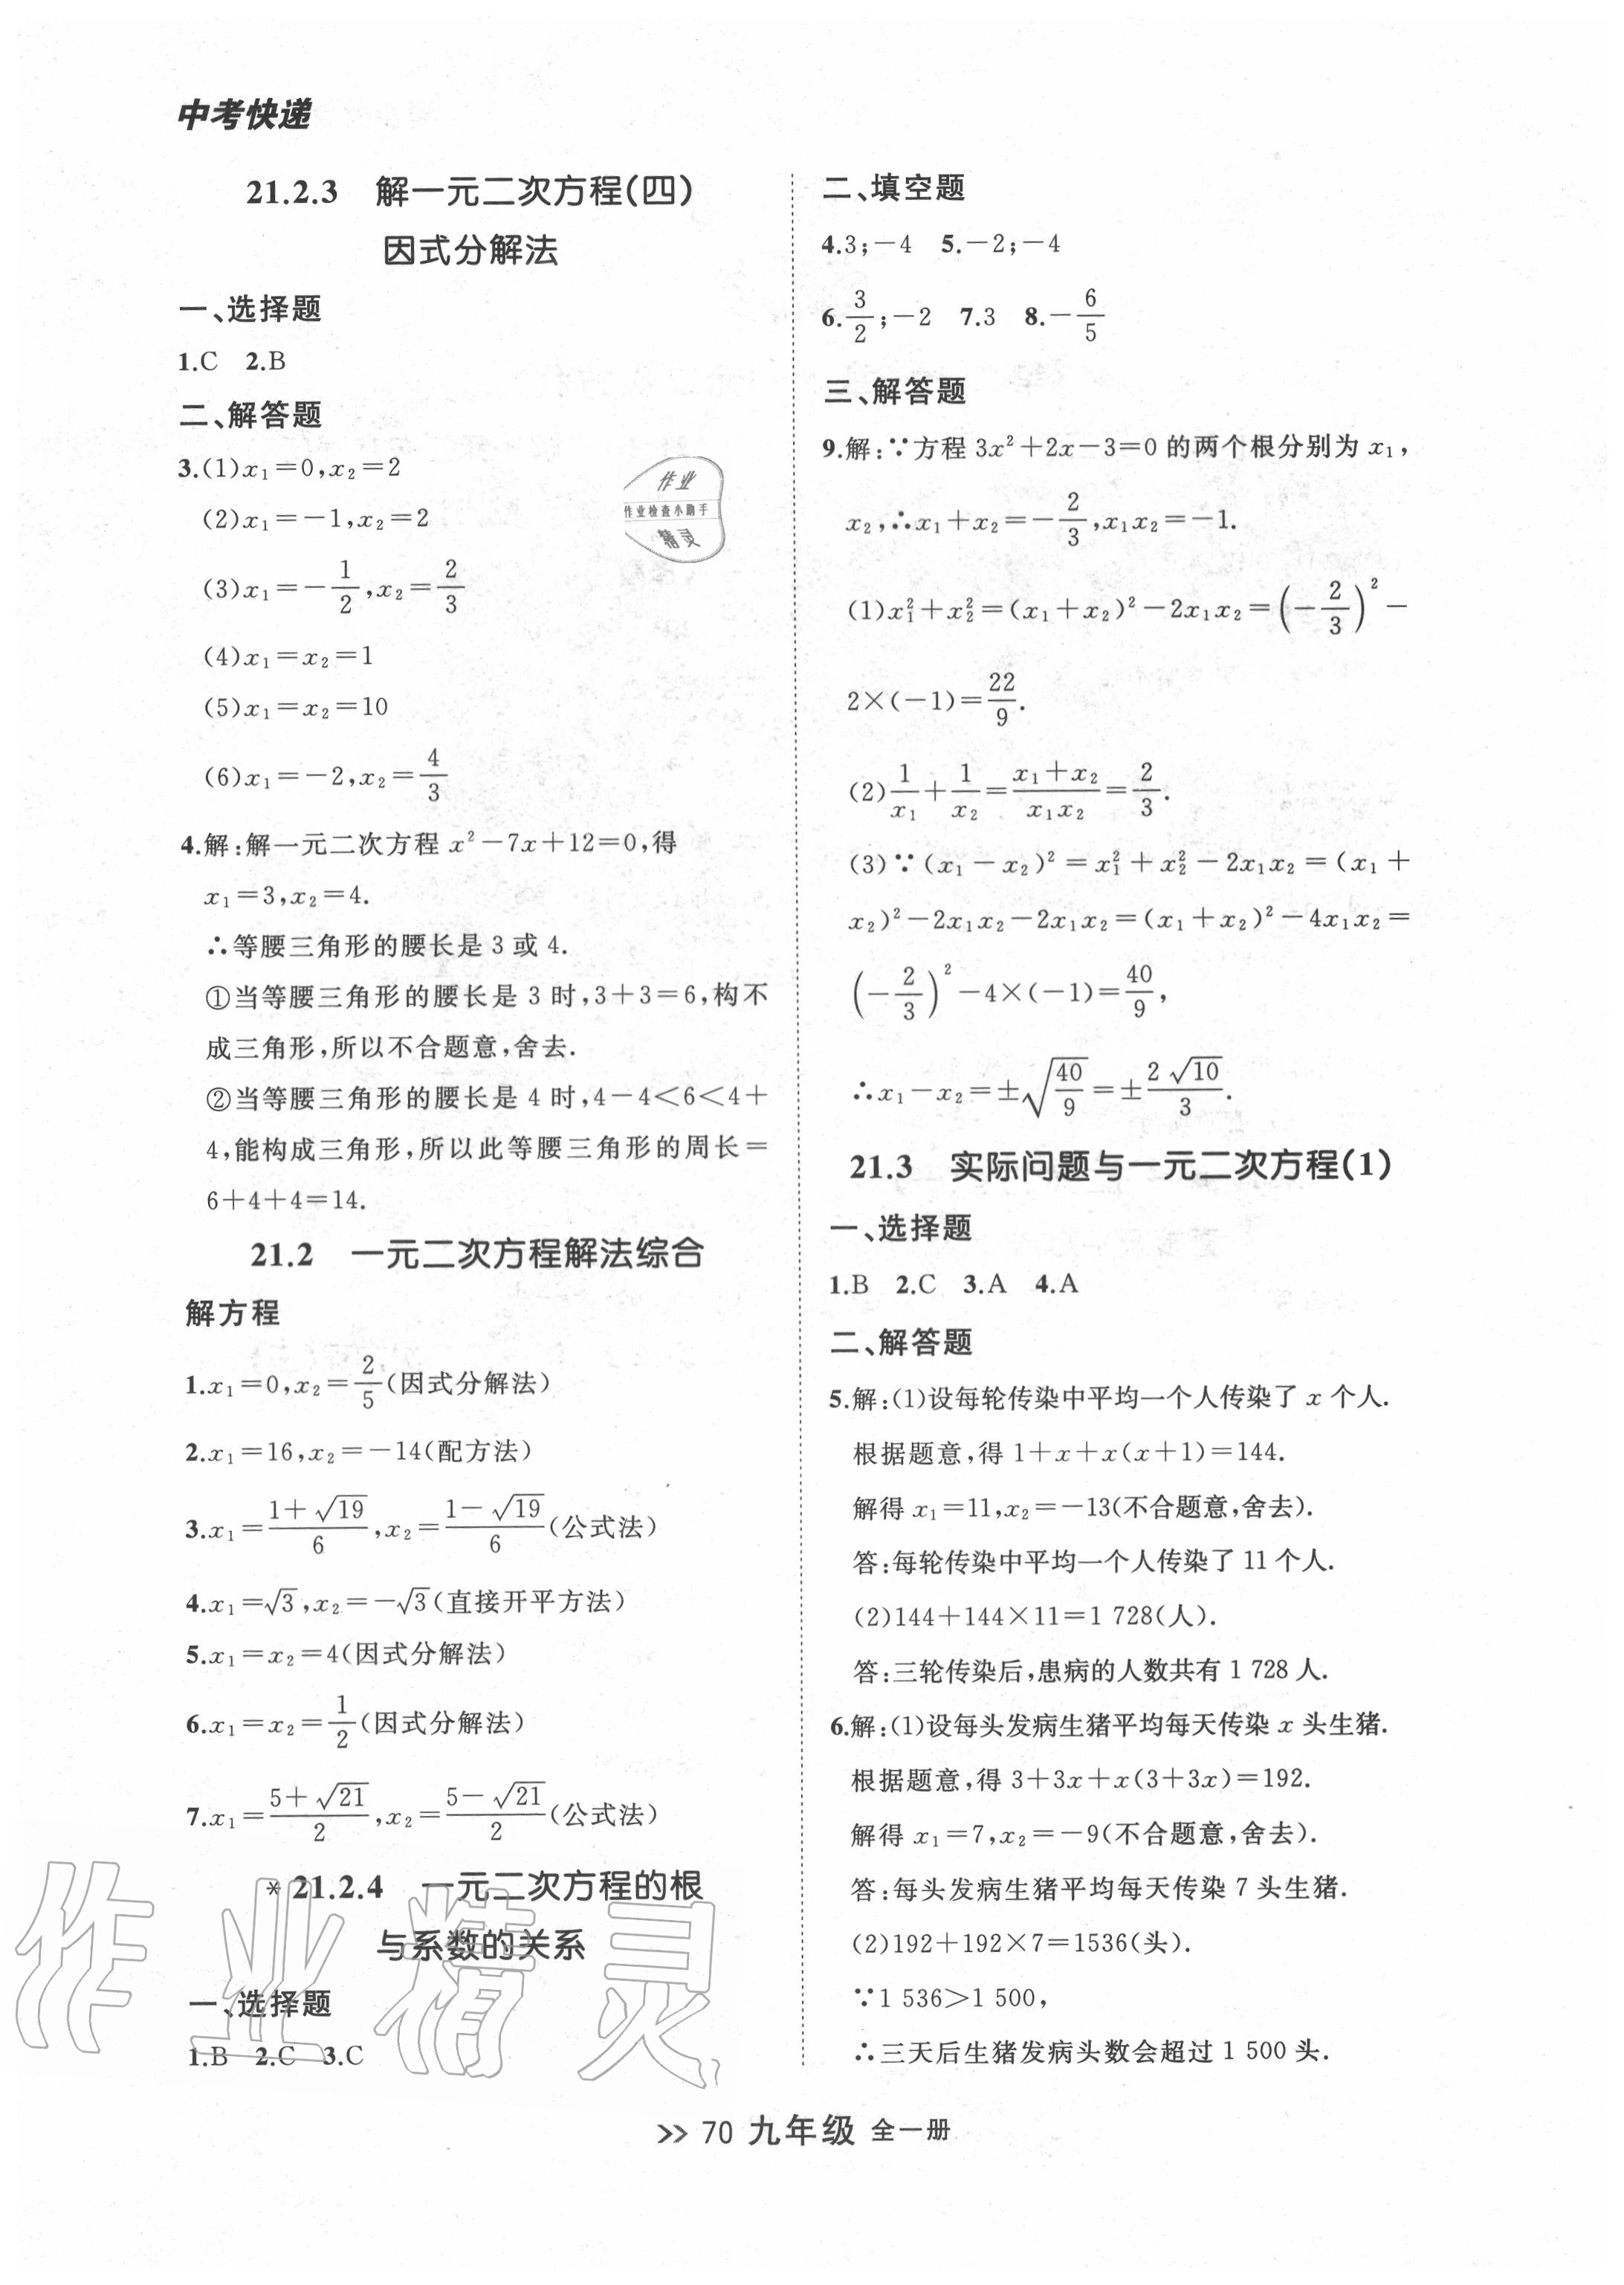 中考快递
21.2.3 解一元二次方程(四)
因式分解法
一、选择题
1.C 2.B
二、解答题
3.(1)x₁=0,x₂=2
(2)x₁=-1,x₂=2
(3)x₁=-1/2,x₂=2/3
(4)x₁=x₂=1
(5)x₁=x₂=10
(6)x₁=-2,x₂=4/3
4.解:解一元二次方程 x²-7x+12=0,得
x₁=3,x₂=4.
∴等腰三角形的腰长是 3 或 4.
①当等腰三角形的腰长是 3 时,3+3=6,构不
成三角形,所以不合题意,舍去.
②当等腰三角形的腰长是 4 时,4-4<6<4+
4,能构成三角形,所以此等腰三角形的周长=
6+4+4=14.
21.2 一元二次方程解法综合
解方程
1.x₁=0,x₂=2/5(因式分解法)
2.x₁=16,x₂=-14(配方法)
3.x₁=(1+√19)/6,x₂=(1-√19)/6(公式法)
4.x₁=√3,x₂=-√3(直接开平方法)
5.x₁=x₂=4(因式分解法)
6.x₁=x₂=1/2(因式分解法)
7.x₁=(5+√21)/2,x₂=(5-√21)/2(公式法)
*21.2.4 一元二次方程的根
与系数的关系
一、选择题
1.B 2.C 3.C
二、填空题
4.3;-4 5.-2;-4
6.3/2;-2 7.3 8.-6/5
三、解答题
9.解:∵方程 3x²+2x-3=0 的两个根分别为 x₁,
x₂,∴x₁+x₂=-2/3,x₁x₂=-1.
(1)x₁²+x₂²=(x₁+x₂)²-2x₁x₂=(-2/3)²-
2×(-1)=22/9.
(2)1/x₁+1/x₂=(x₁+x₂)/(x₁x₂)=2/3.
(3)∵(x₁-x₂)²=x₁²+x₂²-2x₁x₂=(x₁+
x₂)²-2x₁x₂-2x₁x₂=(x₁+x₂)²-4x₁x₂=
(-2/3)²-4×(-1)=40/9,
∴x₁-x₂=±√(40/9)=±2√10/3.
21.3 实际问题与一元二次方程(1)
一、选择题
1.B 2.C 3.A 4.A
二、解答题
5.解:(1)设每轮传染中平均一个人传染了 x 个人.
根据题意,得 1+x+x(x+1)=144.
解得 x₁=11,x₂=-13(不合题意,舍去).
答:每轮传染中平均一个人传染了 11 个人.
(2)144+144×11=1 728(人).
答:三轮传染后,患病的人数共有 1 728 人.
6.解:(1)设每头发病生猪平均每天传染 x 头生猪.
根据题意,得 3+3x+x(3+3x)=192.
解得 x₁=7,x₂=-9(不合题意,舍去).
答:每头发病生猪平均每天传染 7 头生猪.
(2)192+192×7=1536(头).
∵1 536>1 500,
∴三天后生猪发病头数会超过 1 500 头.
>> 70 九年级 全一册
作业
作业检查小助手
精灵
作业精灵